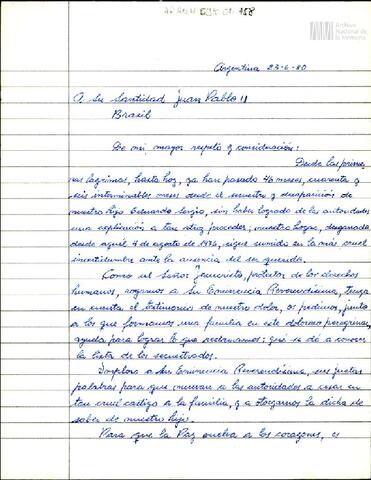 Archivo
Nacional de
la Memoria
Argentina 23-6-80
A Su Santidad Juan Pablo II
Brasil
De mi mayor respeto y consideración:
Desde las prime-
ras lágrimas, hasta hoy, ya han pasado 46 meses, cuarenta y
seis interminables meses desde el secuestro y desaparición de
nuestro hijo Eduardo Sergio, sin haber logrado de las autoridades
una explicación a tan atroz proceder; nuestro hogar, desgarrado
desde aquel 4 de agosto de 1976, sigue sumido en la más cruel
incertidumbre ante la ausencia del ser querido.
Como el Señor Jesucristo, protector de los derechos
humanos, rogamos a Su Eminencia Reverendísima, tenga
en cuenta el testimonio de nuestro dolor, o pedimos, junto
a los que formamos una familia en este doloroso peregrinar,
ayuda para lograr lo que reclamamos: que se dé a conocer
la lista de los secuestrados.
Imploro a Su Eminencia Reverendísima, sus justas
palabras para que muevan a las autoridades a cesar en
tan cruel castigo a la familia, y a otorgarnos la dicha de
saber de nuestro hijo.
Para que la Paz vuelva a los corazones, es